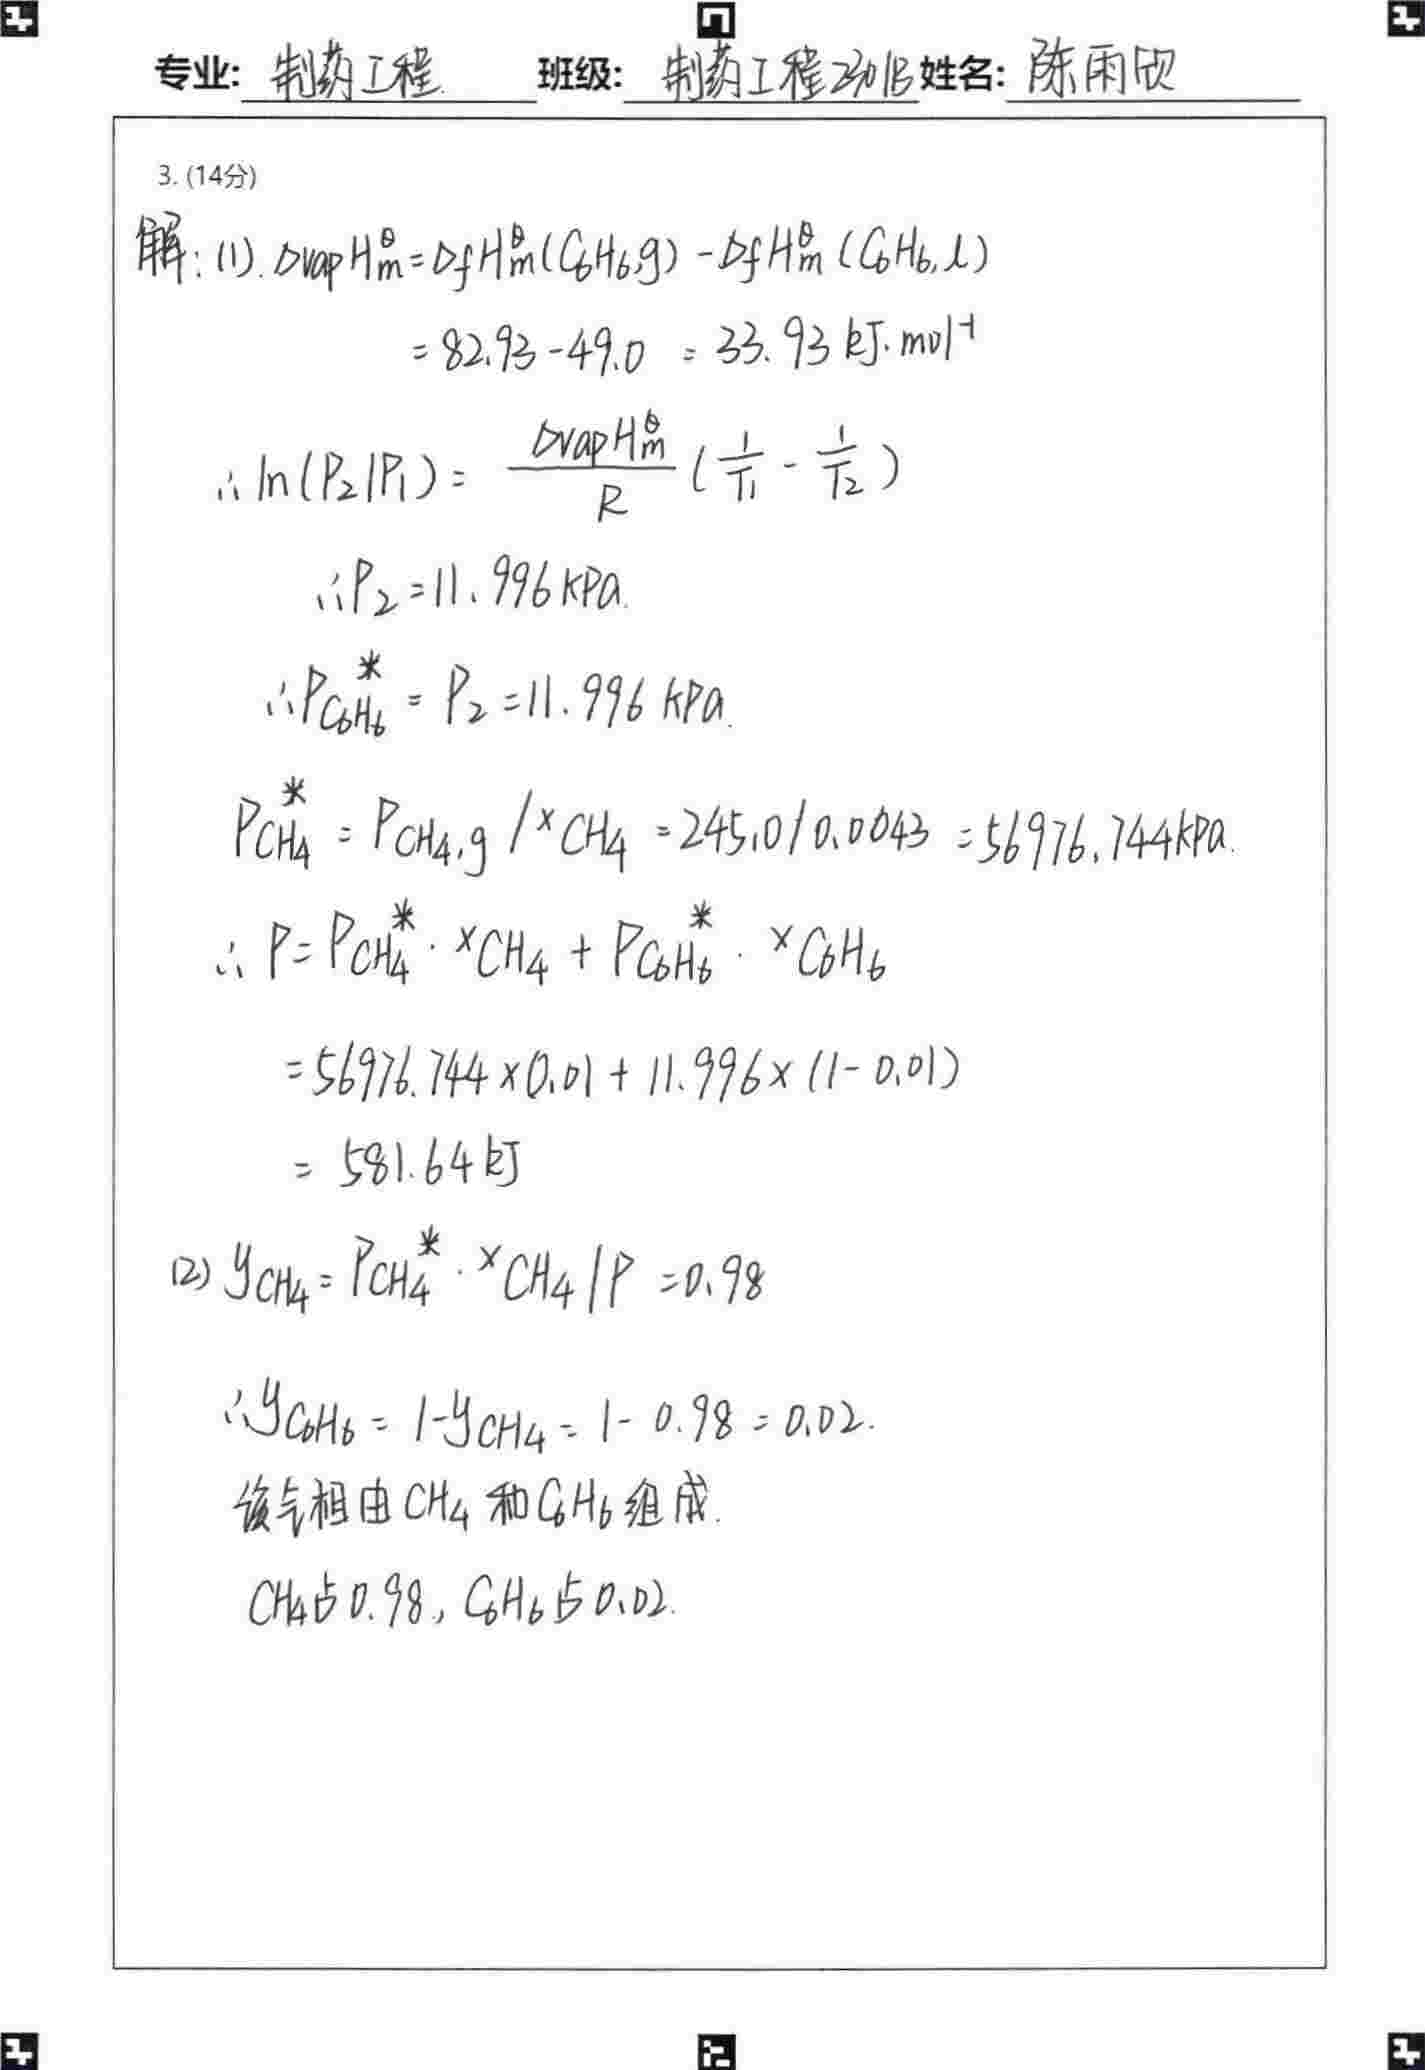 专业: 制药工程 班级: 制药工程2301B 姓名: 陈雨欣
3. (14分)
解: (1). ΔvapHmθ = ΔfHmθ(C6H6,g) - ΔfHmθ(C6H6,l)
= 82.93-49.0 = 33.93 kJ·mol⁻¹
∴ ln(P2/P1) = ΔvapHmθ/R (1/T1 - 1/T2)
∴P2 = 11.996 kPa.
∴P*C6H6 = P2 = 11.996 kPa.
P*CH4 = PCH4,g / xCH4 = 245.0/0.0043 = 56976.744kPa.
∴ P = P*CH4 · xCH4 + P*C6H6 · xC6H6
= 56976.744×0.01 + 11.996×(1-0.01)
= 581.64 kJ
(2) yCH4 = P*CH4 · xCH4 / P = 0.98
∴yC6H6 = 1-yCH4 = 1- 0.98 = 0.02.
该气相由CH4和C6H6组成.
CH4占0.98, C6H6占0.02.